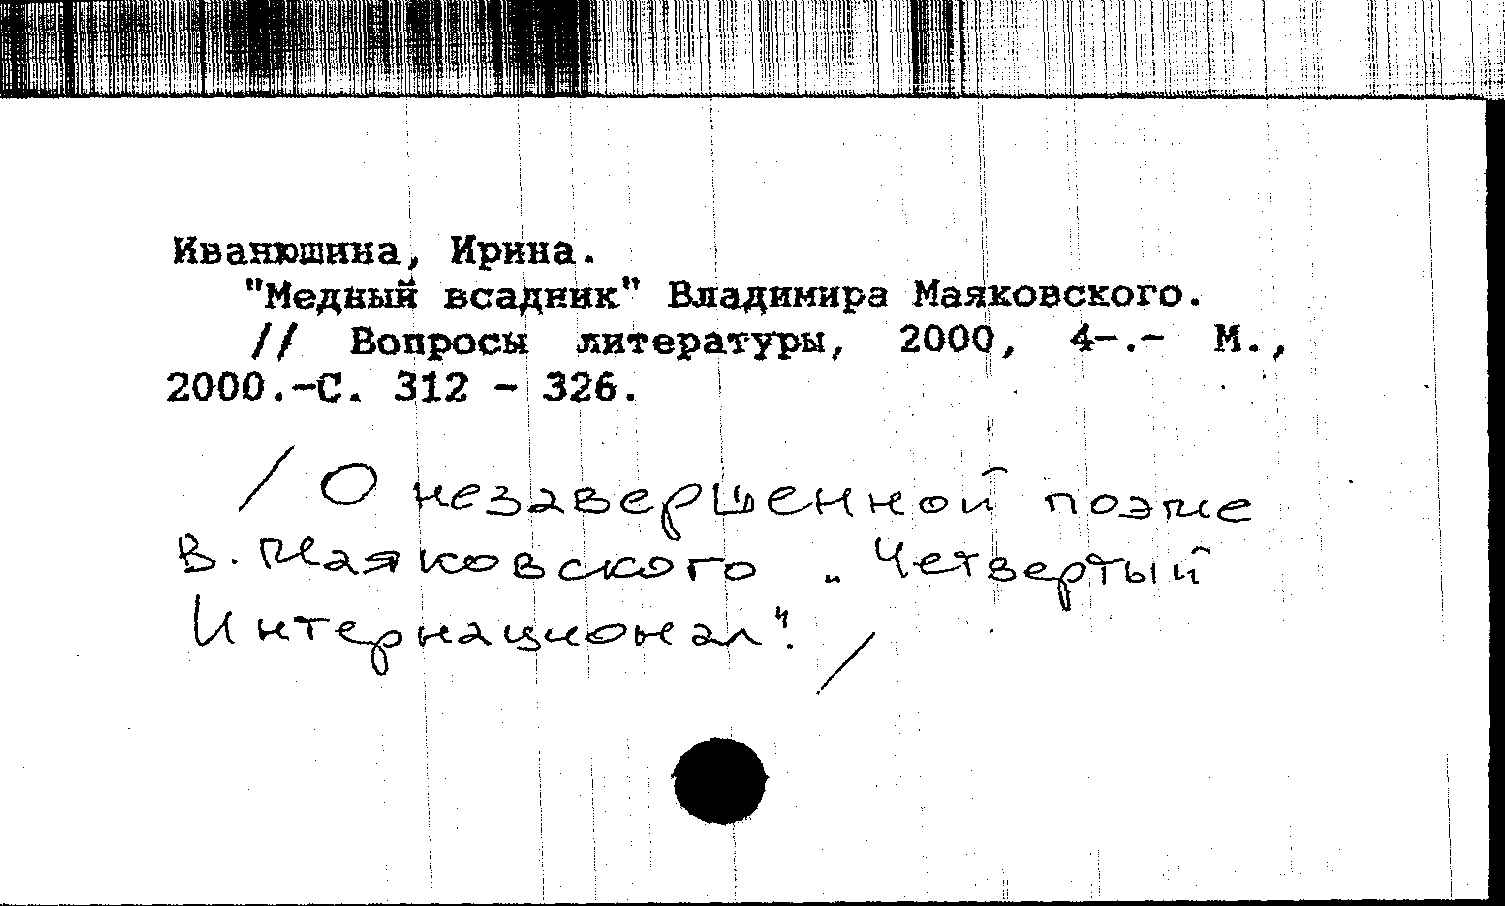 Иванюшина, Ирина.
"Медный всадник" Владимира Маяковского.
// Вопросы литературы, 2000, 4-.- М.,
2000.-С. 312 - 326.
/ О незавершенной поэме
В. Маяковского „Четвертый
Интернационал". /